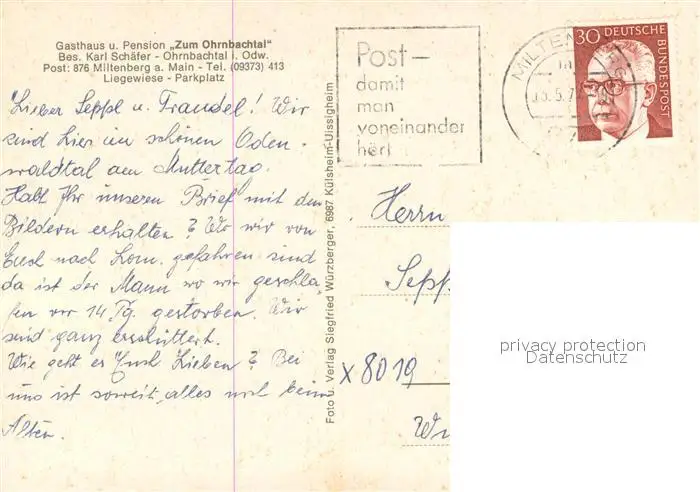 Gasthaus u. Pension „Zum Ohrnbachtal"
Bes. Karl Schäfer - Ohrnbachtal i. Odw.
Post: 876 Miltenberg a. Main - Tel. (09373) 413
Liegewiese - Parkplatz
Lieber Seppl u. Traudel! Wir
sind hier im schönen Oden-
waldtal am Muttertag.
Habt Ihr unseren Brief mit den
Bildern erhalten? Wo wir von
Euch nach Lom. gefahren sind
da ist der Mann wo wir geschla-
fen vor 14 Tg. gestorben. Wir
sind ganz erschüttert.
Wie geht es Euch Lieben? Bei
uns ist soweit alles noch beim
Alten.
Foto u. Verlag Siegfried Würzberger, 6987 Külsheim-Uissigheim
Post-
damit
man
voneinander
hört
MILTEN
30 DEUTSCHE
BUNDESPOST
Herrn
Sepp
x 8019
privacy protection
Datenschutz